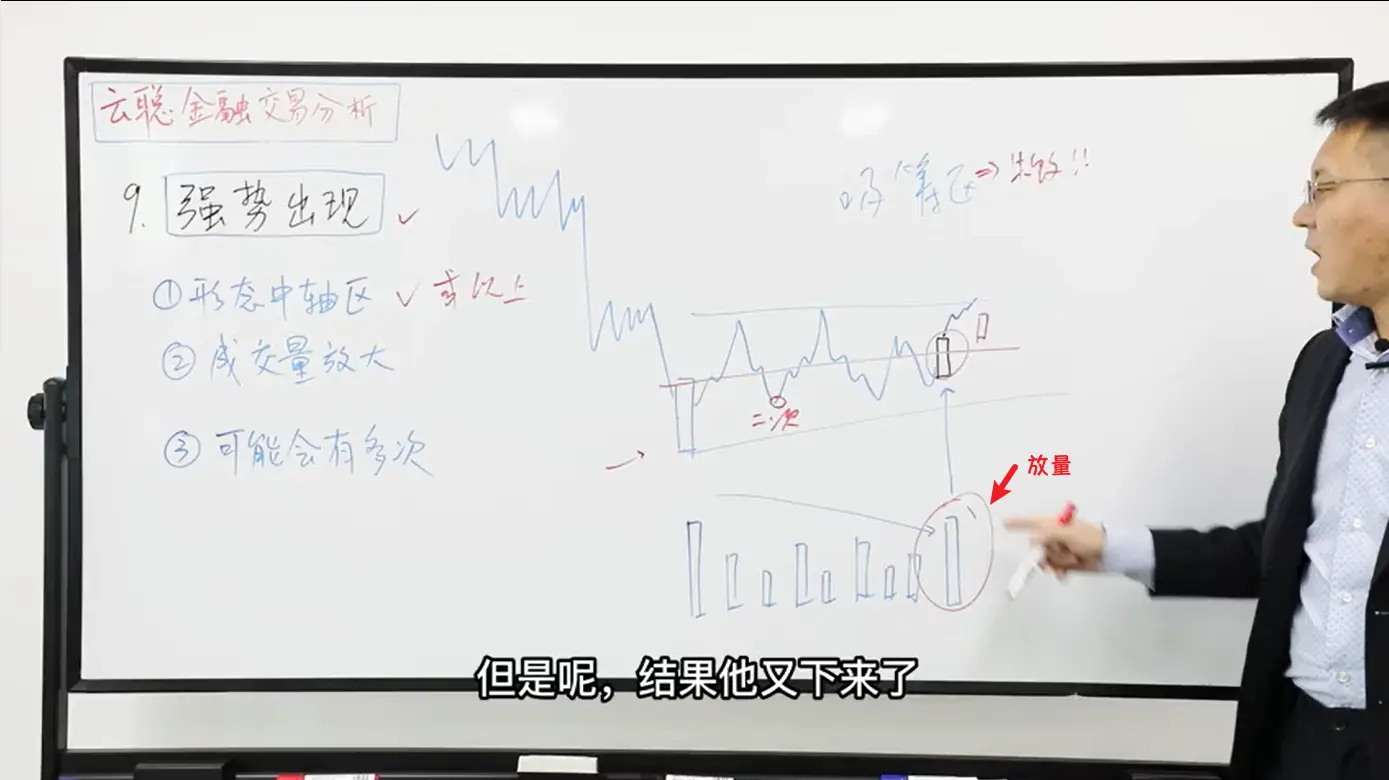 云聪金融交易分析
9. 强势出现
①形态中轴区 或以上
②成交量放大
③可能会有多次
吸筹区⇒
二次
放量
但是呢，结果他又下来了